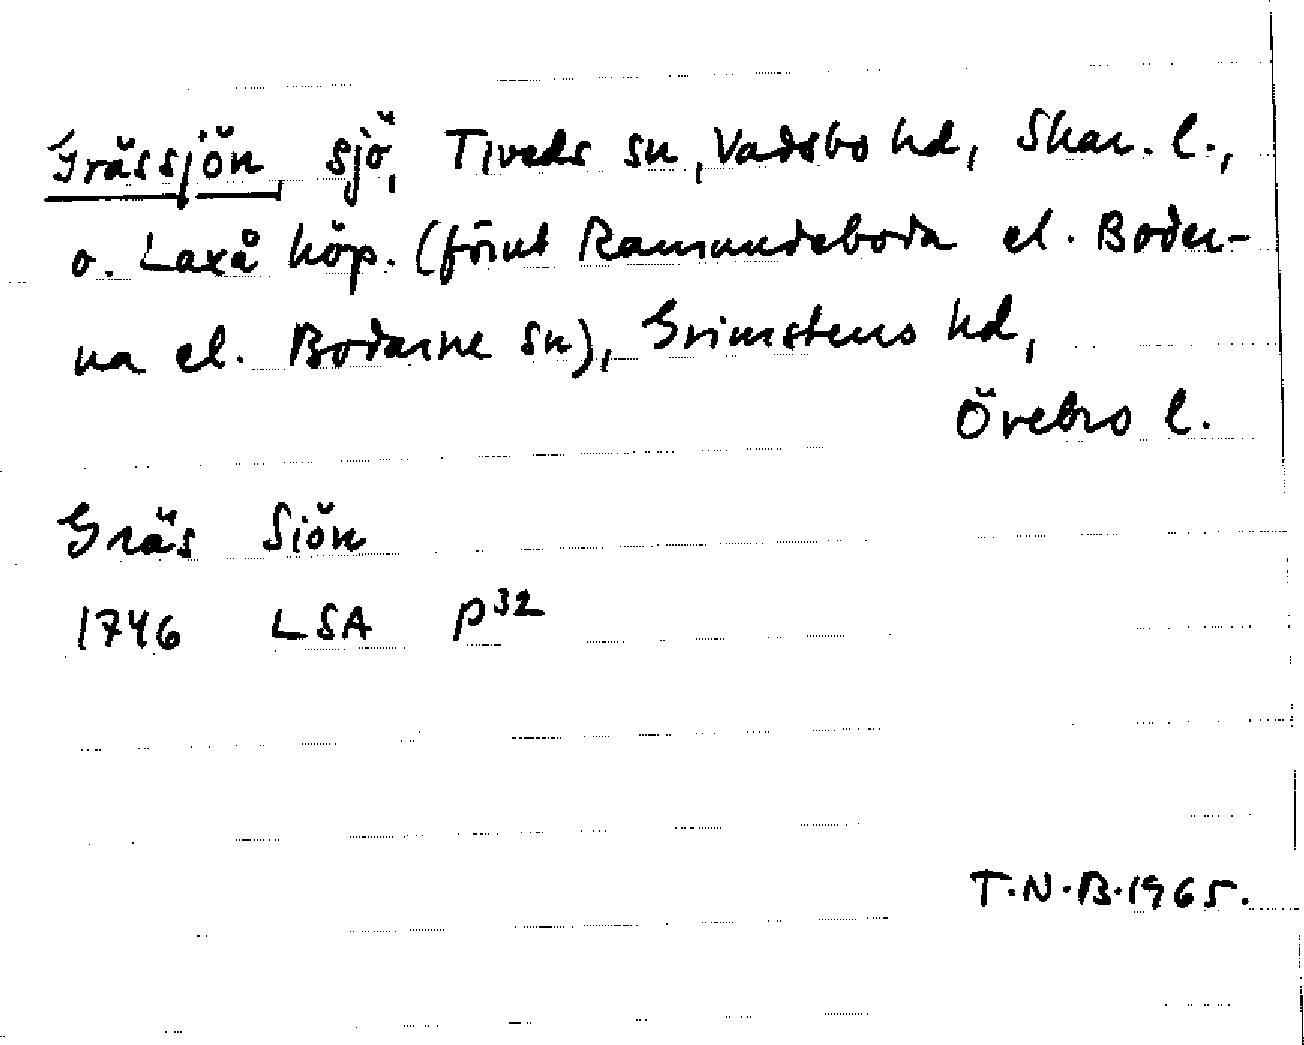 Grässjön, sjö, Tiveds sn, Vadsbo hd, Skar. l.,
o. Laxå köp. (förut Ramundeboda el. Boder-
na el. Bodarne sn), Grimstens hd,
Örebro l.
Gräs Siön
1746 LSA P32
T.N.B.1965.